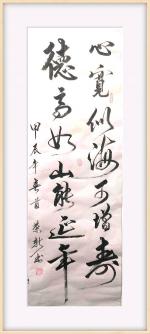 心寬似海可增壽
德高如山能延年
甲辰年春首